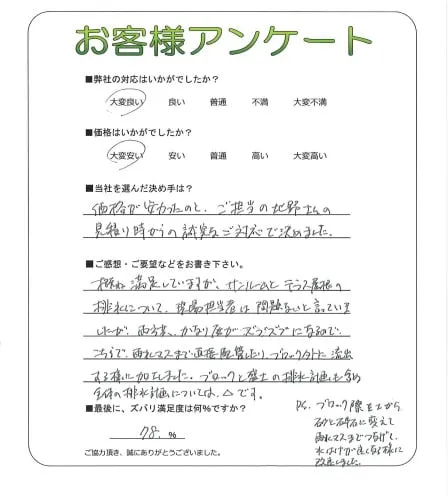 お客様アンケート
■弊社の対応はいかがでしたか？
大変良い 良い 普通 不満 大変不満
■価格はいかがでしたか？
大変安い 安い 普通 高い 大変高い
■当社を選んだ決め手は？
価格が安かったのと、ご担当の北野さんの
見積り時からの誠実なご対応で決めました。
■ご感想・ご要望などをお書き下さい。
概ね満足していますが、サンルームとテラス屋根の
排水について、現場担当者は問題ないと言っていま
したが、雨が、かなり庭がズブズブになるので、
こちらで、雨水マスまで直接配管したり、ブロック外に流出
する様に加工しました。ブロックと盛土の排水計画も含め
全体の排水計画については、△です。
■最後に、ズバリ満足度は何%ですか？
78. %
ご協力頂き、誠にありがとうございました。
P.S. ブロック際を土から
砂と砕石に変えて
雨水マスまでつなげて、
水はけが良くなる様に
改良しました。